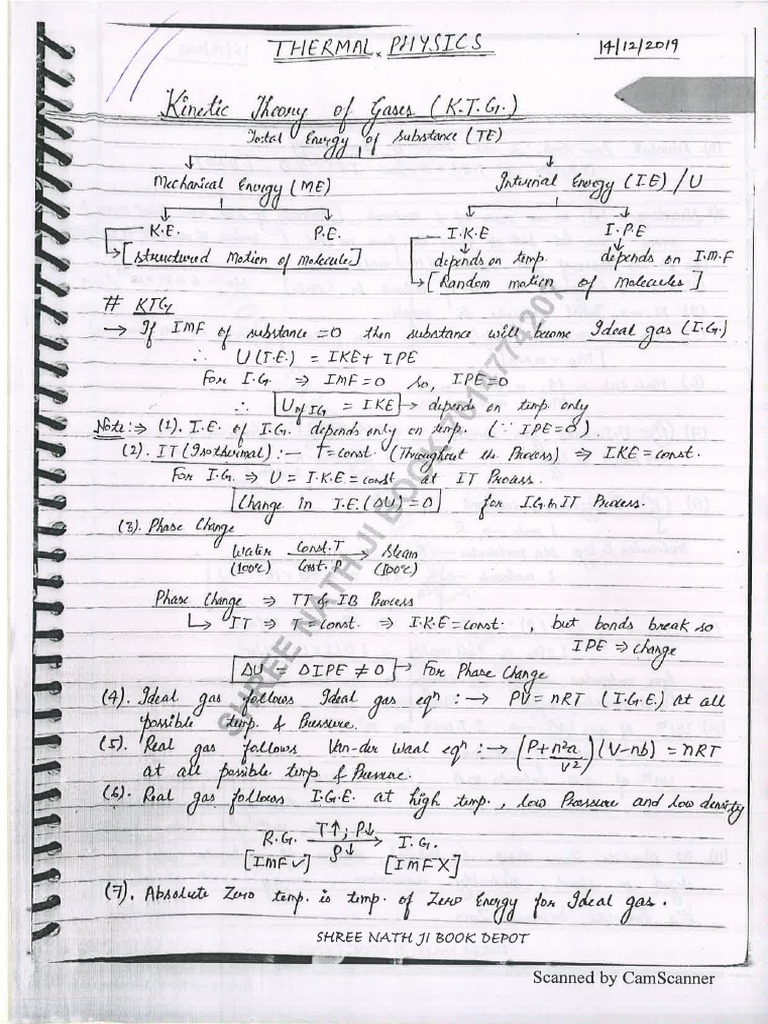 THERMAL PHYSICS 14/12/2019
Kinetic Theory of Gases (K.T.G.)
Total Energy of Substance (TE)
Mechanical Energy (ME) Internal Energy (I.E) / U
K.E. P.E. I.K.E I.P.E
[structured Motion of Molecule] depends on temp. depends on I.M.F
[Random motion of Molecules]
# KTG
→ If IMF of substance = 0 then substance will become Ideal gas (I.G.)
∴ U (I.E.) = IKE + IPE
For I.G ⇒ IMF = 0 so, IPE = 0
∴ U of IG = IKE → depends on temp only
Note:⇒ (1). I.E. of I.G. depends only on temp. (∵ IPE = 0).
(2). IT (Isothermal) :– T = const. (Throughout the Process) ⇒ IKE = const.
For I.G. ⇒ U = I.K.E. = const at IT Process.
Change in I.E. (ΔU) = 0 for I.G. in IT Process.
(3). Phase Change
Water Const. T → Steam
(100°C) Cost. P (100°C)
Phase Change ⇒ IT & IB Process
↳ IT ⇒ T = const. ⇒ I.K.E = const. , but bonds break so
IPE ⇒ change
ΔU = ΔIPE ≠ 0 → For Phase Change
(4). Ideal gas follows Ideal gas eqⁿ :→ PV = nRT (I.G.E.) at all
possible temp. & Pressure.
(5). Real gas follows Van-der Waal eqⁿ :→ (P + n²a/V²) (V – nb) = nRT
at all possible temp. & Pressure.
(6). Real gas follows I.G.E. at high temp. , low Pressure and low density
R.G. T↑ ; P↓ → I.G.
ρ↓
[IMF✓] [IMF X]
(7). Absolute Zero temp. is temp. of Zero Energy for Ideal gas.
SHREE NATH JI BOOK DEPOT
Scanned by CamScanner